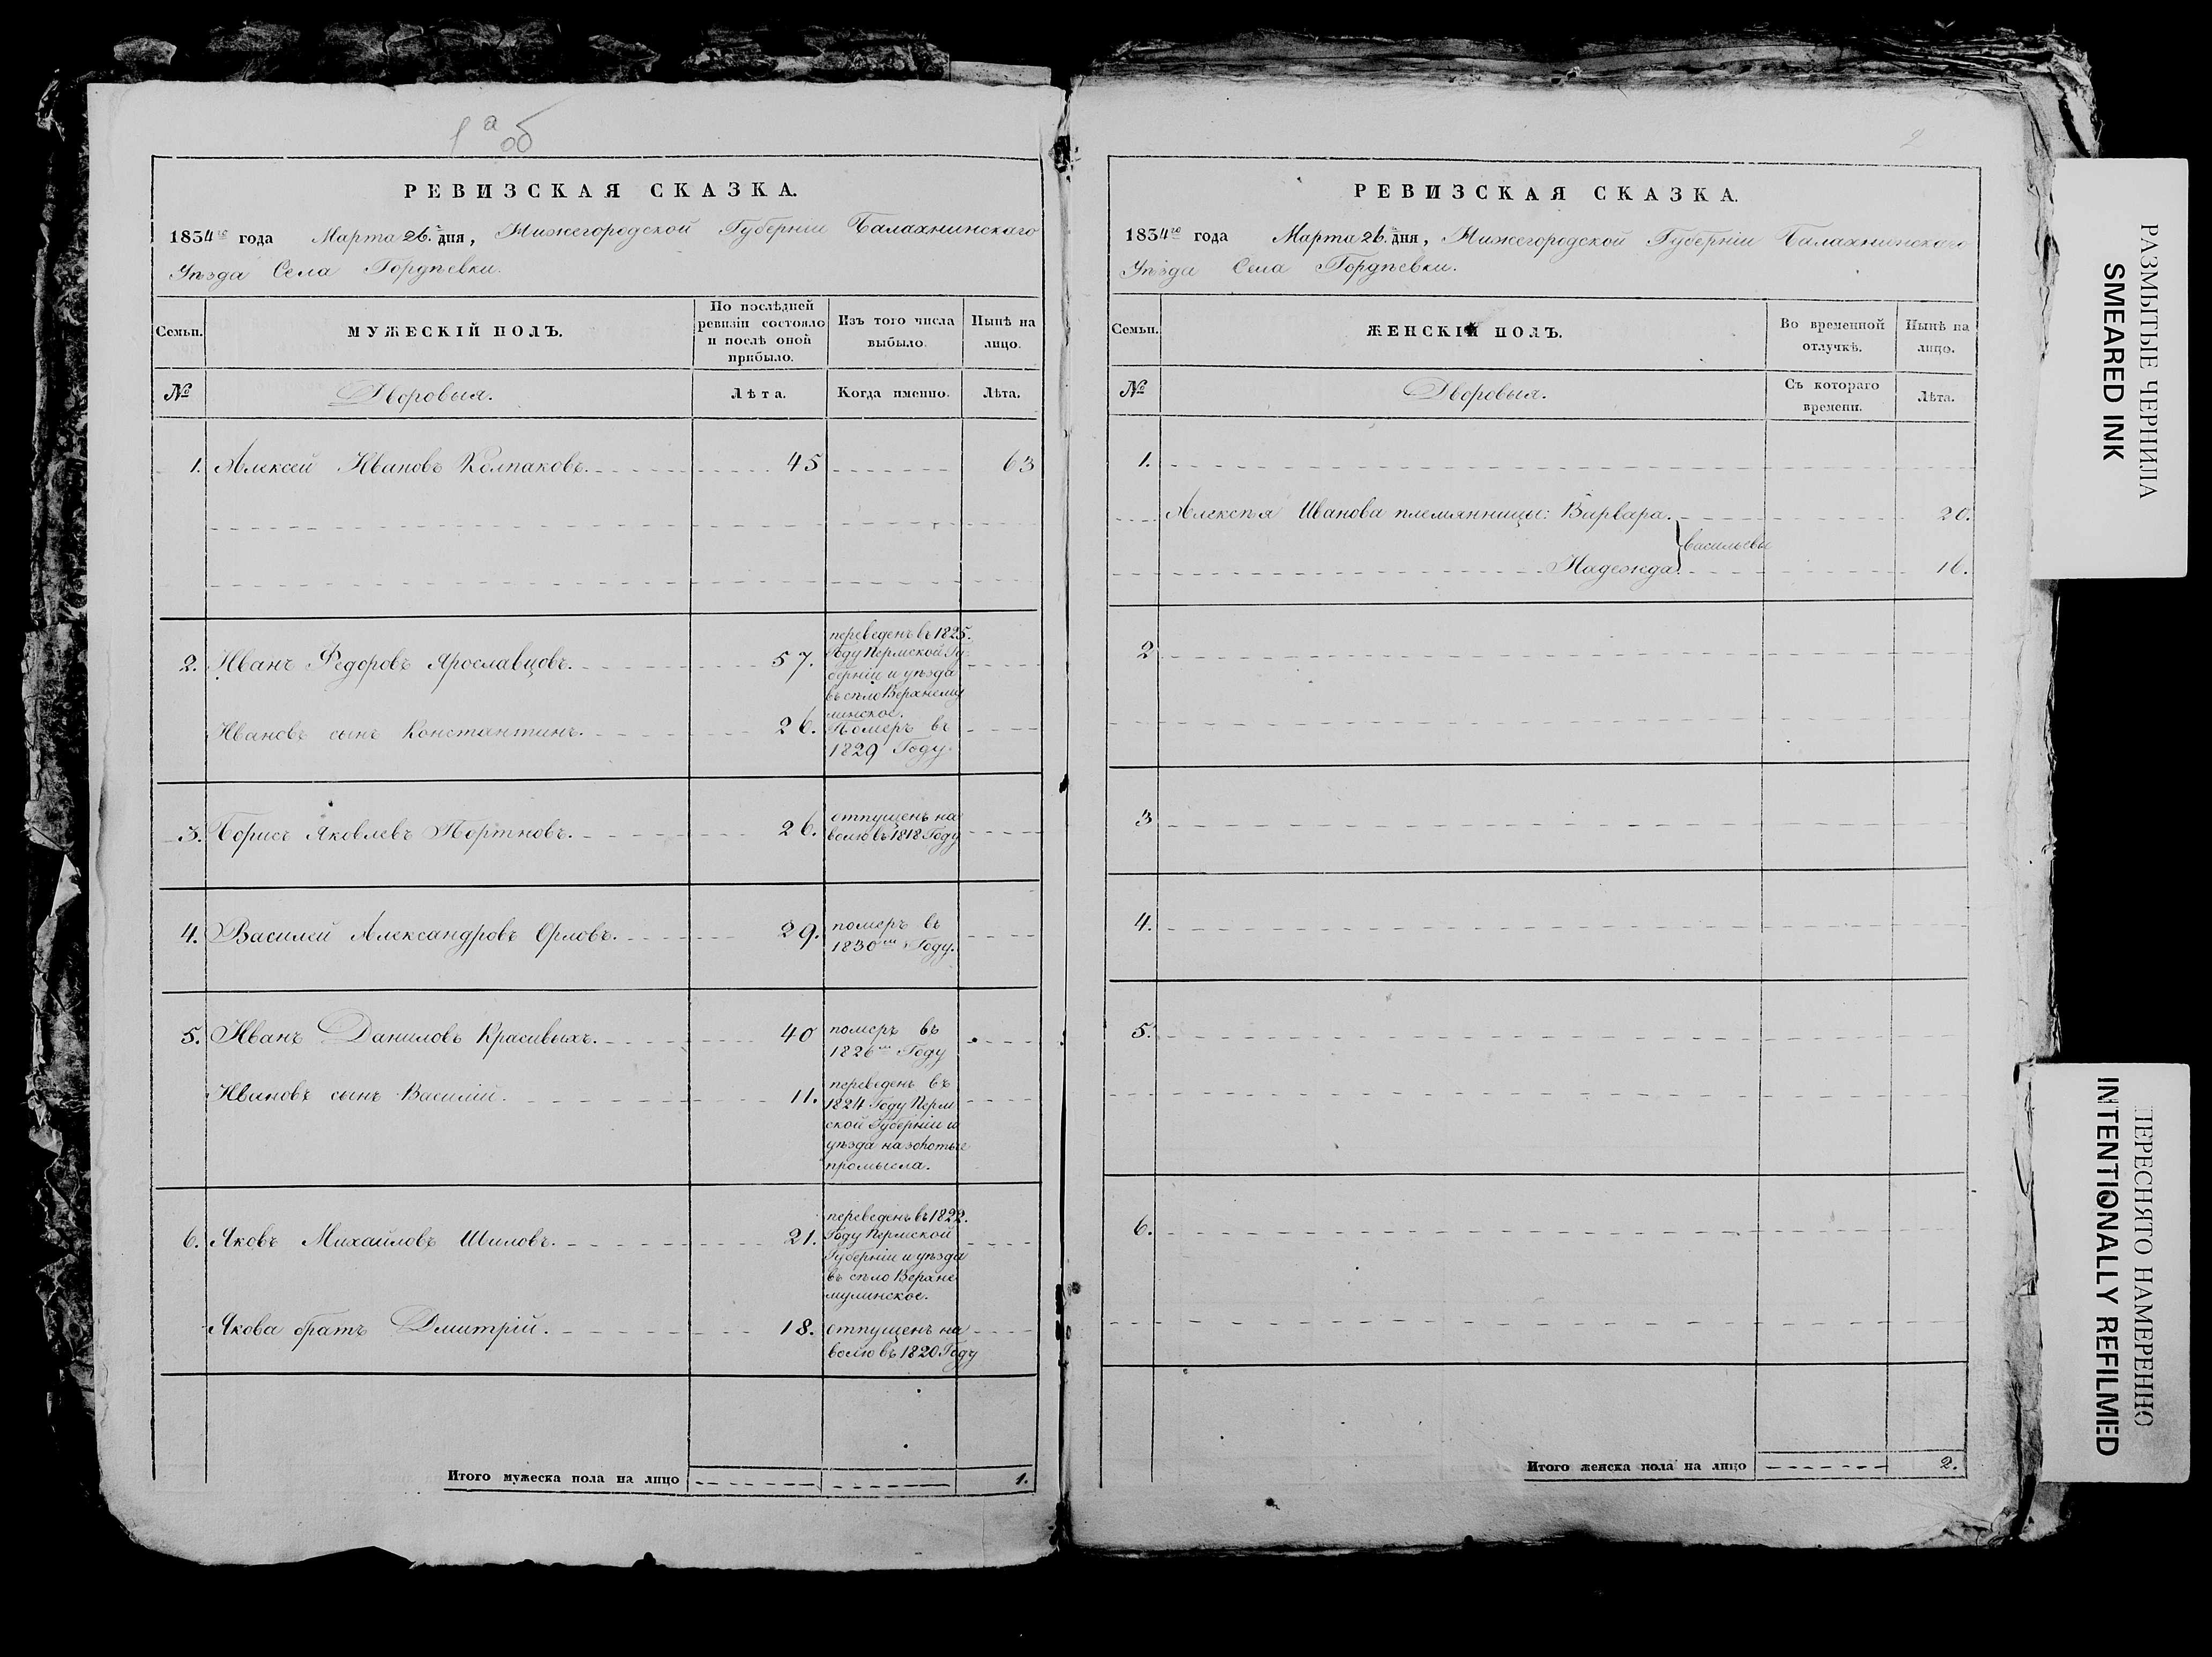 1 а об
РЕВИЗСКАЯ СКАЗКА.
1834го года Марта 26го дня, Нижегородской Губерніи Балахнинскаго
Уѣзда Села Гордѣевки.
Семьи.
МУЖЕСКІЙ ПОЛЪ.
По послѣдней
ревизіи состояло
и послѣ оной
прибыло.
Изъ того числа
выбыло.
Нынѣ на
лицо.
№ Дворовыя. Лѣта. Когда именно. Лѣта.
1. Алексей Ивановъ Колпаковъ. 45 63
2. Иванъ Федоровъ Ярославцовъ. 57.
переведенъ въ 1825.
Году Пермской Гу-
берніи и уѣзда
въ сѣло Верхнему
линское.
Ивановъ сынъ Константинъ. 26.
Померъ въ
1829 Году.
3. Борисъ Яковлевъ Портновъ. 26.
отпущенъ на
волю въ 1818 Году
4. Василей Александровъ Орловъ. 29.
померъ въ
1830мъ Году.
5. Иванъ Даниловъ Красивыхъ. 40
померъ въ
1826мъ Году
Ивановъ сынъ Василій. 11.
переведенъ въ
1824 Году Перм
ской Губерніи и
уѣзда на золотые
промысла.
6. Яковъ Михайловъ Шиловъ. 21.
переведенъ въ 1822.
Году Пермской
Губерніи и уѣзда
въ сѣло Верхне
мулинское.
Якова братъ Дмитрій. 18.
отпущенъ на
волю въ 1820 Году
Итого мужеска пола на лицо 1.
2
РЕВИЗСКАЯ СКАЗКА.
1834го года Марта 26го дня, Нижегородской Губерніи Балахнинскаго
Уѣзда Села Гордѣевки.
Семьи.
ЖЕНСКІЙ ПОЛЪ.
Во временной
отлучкѣ.
Нынѣ на
лицо.
№ Дворовыя.
Съ котораго
времени.
Лѣта.
1.
Алексѣя Иванова племянницы: Варвара. 20.
Васильевы
Надежда. 16.
2
3
4.
5.
6.
Итого женска пола на лицо 2.
РАЗМЫТЫЕ ЧЕРНИЛА
SMEARED INK
ПЕРЕСНЯТО НАМЕРЕННО
INTENTIONALLY REFILMED